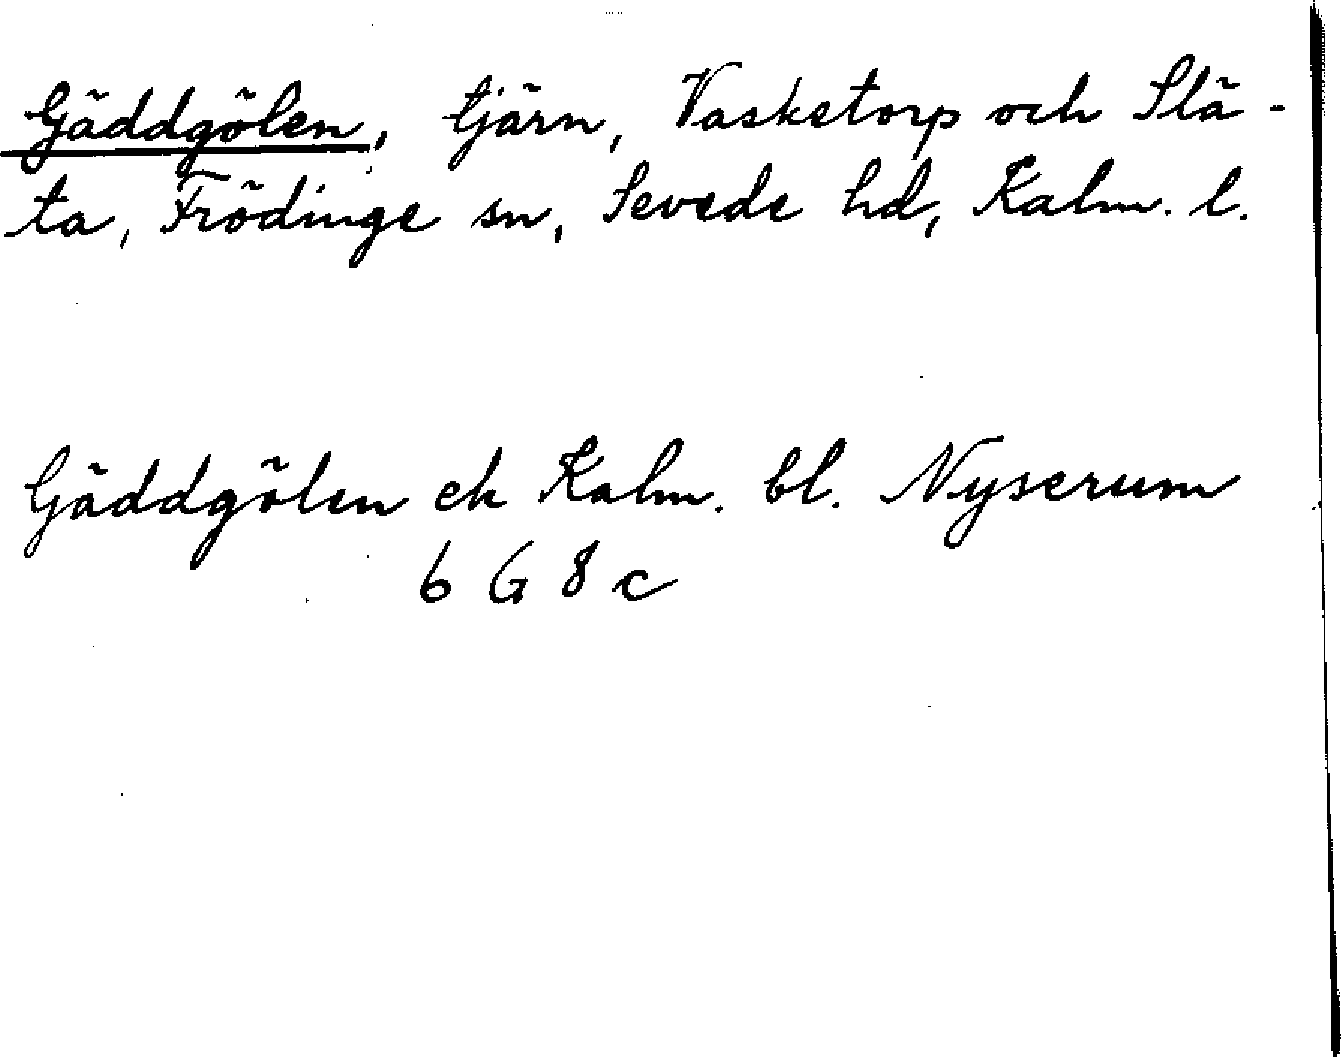 Gäddgölen, tjärn, Vasketorp och Slä-
ta, Frödinge sn, Sevede hd, Kalm. l.
Gäddgölen ek Kalm. bl. Nyserum
6 G 8 c